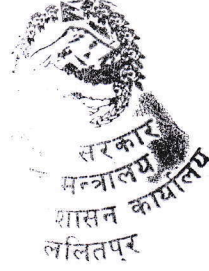 सरकार
मन्त्रालय
शासन कार्यालय
ललितपुर